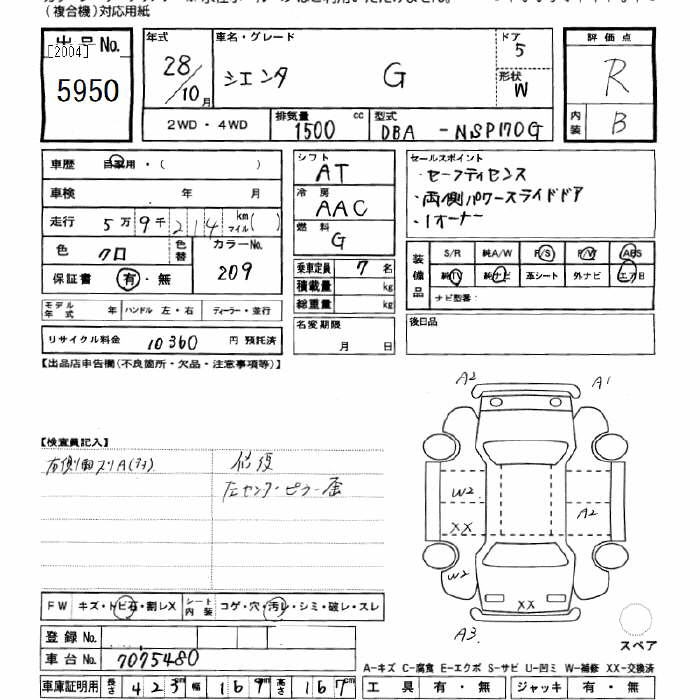 (複合機)対応用紙
出品No. 年式 車名・グレード ドア 評価点
[2004] 28 シエンタ G 5 R
5950 10月 形状 W
2WD・4WD 排気量 1500 cc 型式 DBA - NSP170G 内装 B
車歴 自家用・( ) シフト AT セールスポイント
・セーフティセンス
車検 年 月 冷房 AAC ・両側パワースライドドア
走行 5万9千214 km マイル( ) 燃料 G ・1オーナー
色 クロ 色替 カラーNo. 209 乗車定員 7 名
装備品 S/R 純A/W P/S P/W ABS
保証書 有・無 積載量 kg 純TV 純ナビ 革シート 外ナビ エアB
総重量 kg ナビ型番:
モデル年式 年 ハンドル 左・右 ディーラー・並行 名変期限 後日品
リサイクル料金 10360 円 預託済 月 日
【出品店申告欄(不良箇所・欠品・注意事項等)】
A2 A1
【検査員記入】
右側面スリA 修復
左センターピラー歪
W2
A2
XX
W2
XX
A3
FW キズ・トビ石・割レX シート内装 コゲ・穴・汚レ・シミ・破レ・スレ
登録No.
スペア
車台No. 7075480
A-キズ C-腐食 E-エクボ S-サビ U-凹ミ W-補修 XX-交換済
車庫証明用 長さ 423m 幅 169m 高さ 167cm 工具 有・無 ジャッキ 有・無